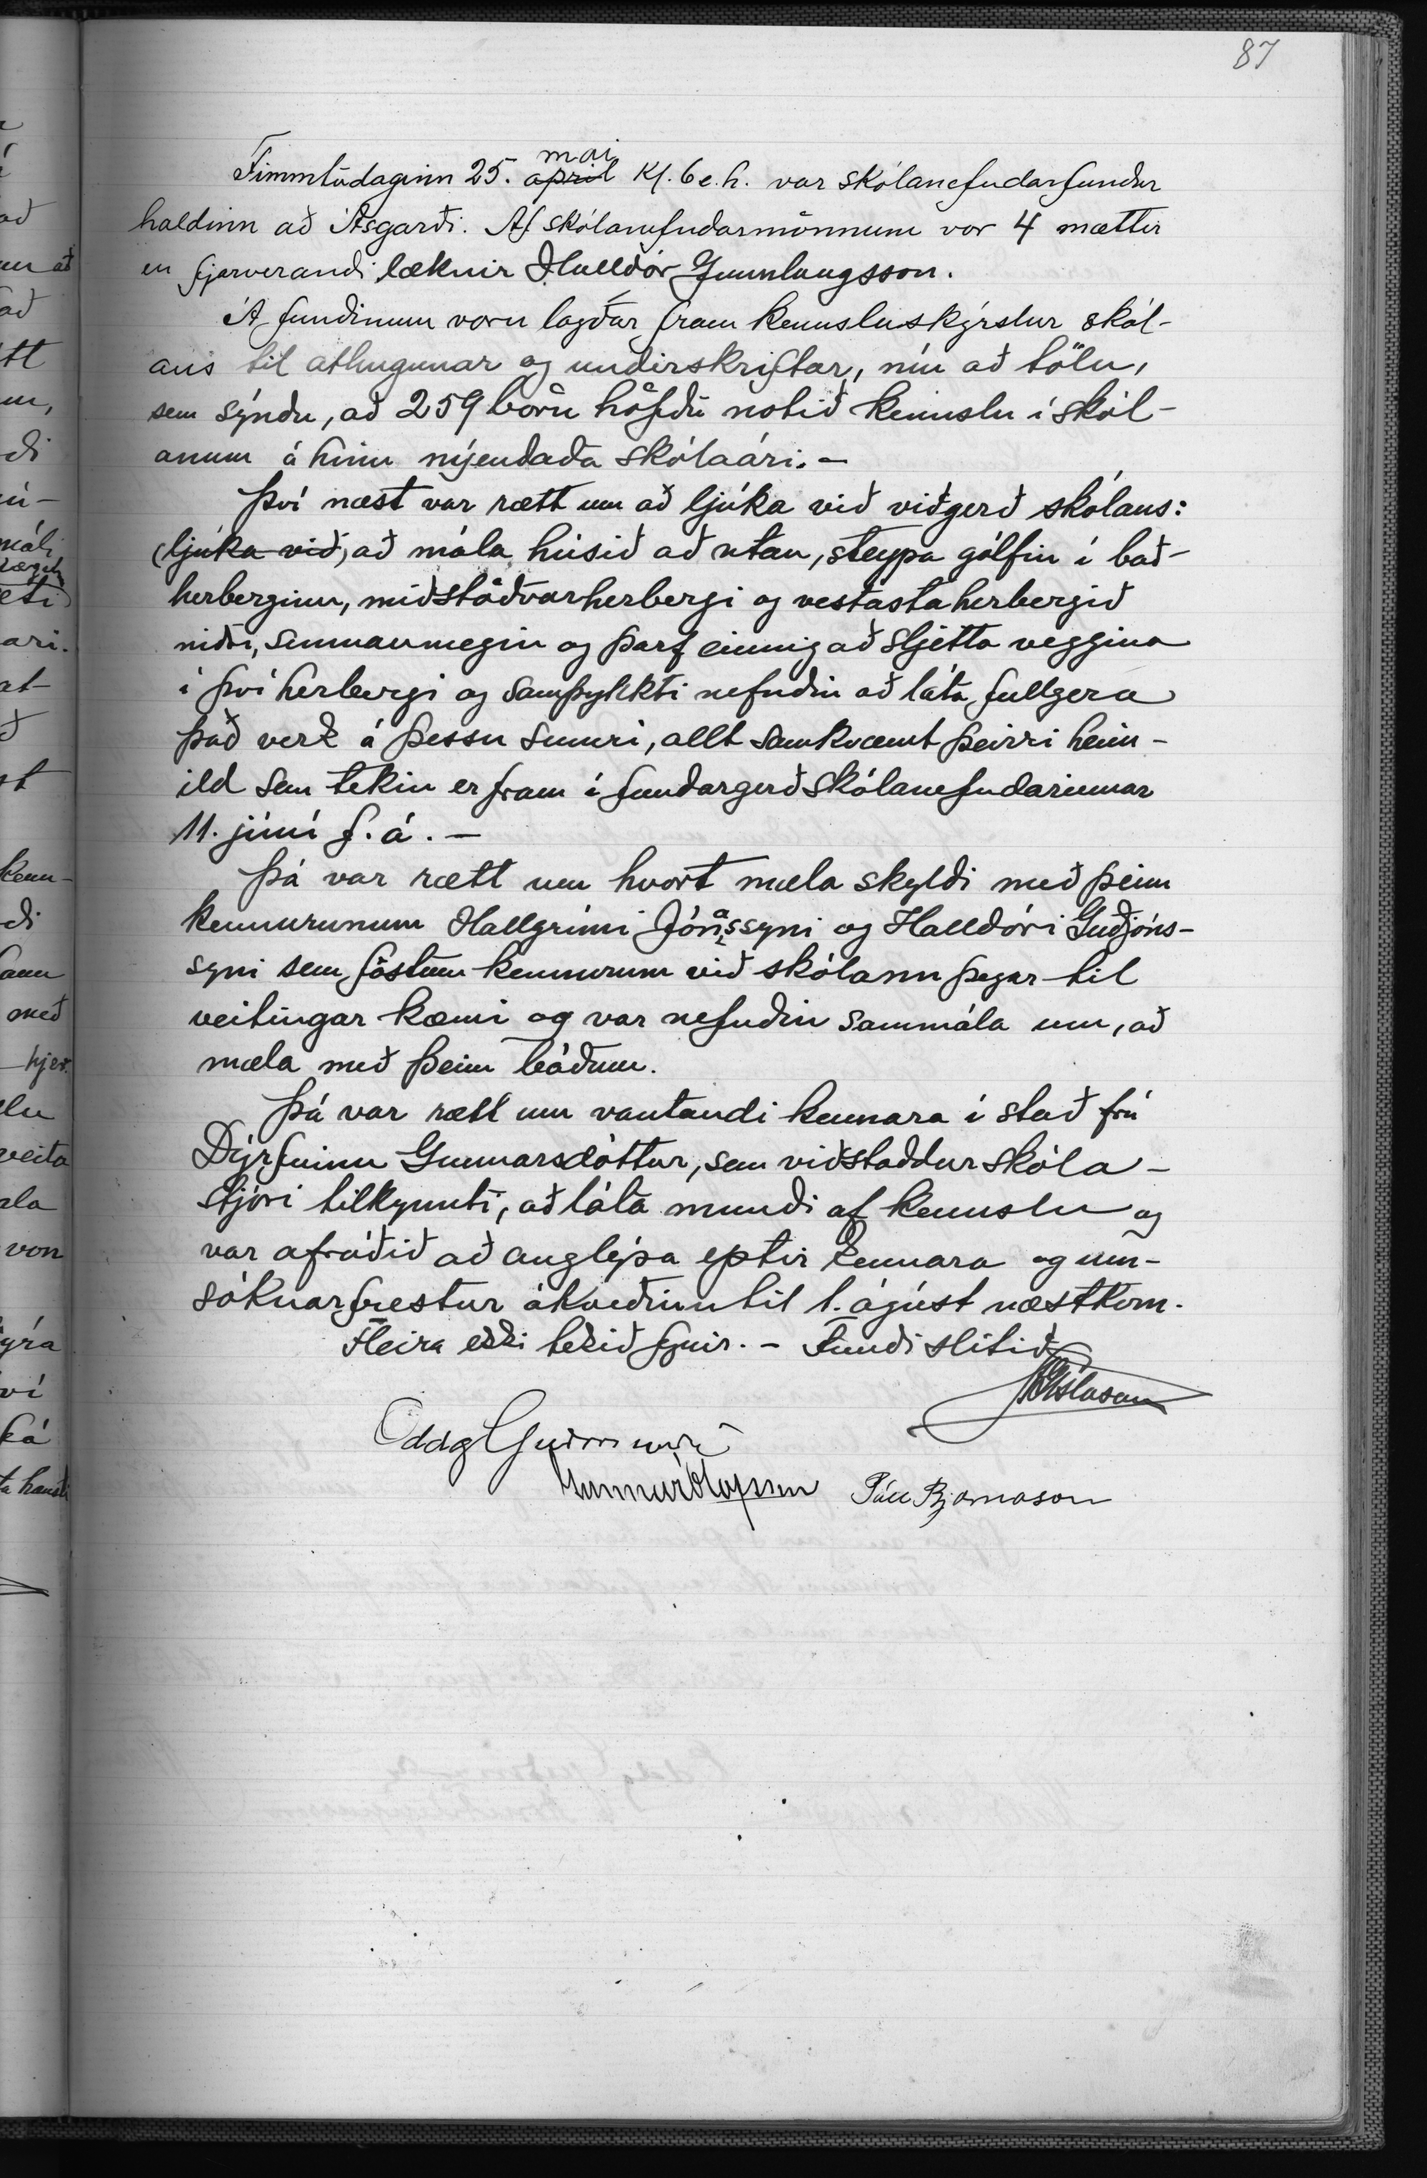 87
Fimmtudaginn 25. apríl maí Kl. 6 e.h. var skólanefndarfundur
haldinn að Ásgarði. Af skólanefndarmönnum vor 4 mættir
en fjarverandi læknir Halldór Gunnlaugsson.
Á fundinum voru lagðar fram kennsluskýrslur skól-
ans til athugunar og undirskriftar, níu að tölu,
sem sýndu, að 259 börn höfðu notið kennslu í skól-
anum á hinu nýendaða skólaári. -
Því næst var rætt um að ljúka við viðgerð skólans:
(ljúka við), að mála húsið að utan, steypa gólfin í bað-
herberginu, miðstöðvarherbergi og vestasta herbergið
niðri, sunnanmegin og þarf einnig að sljetta veggina
í því herbergi og samþykkti nefndin að láta fullgera
það verk á þessu sumri, allt samkvæmt þeirri heim-
ild sem tekin er fram í fundargerð skólanefndarinnar
11. júní f. á. -
Þá var rætt um hvort mæla skyldi með þeim
kennurunum Hallgrími Jónassyni og Halldóri Guðjóns-
syni sem föstum kennurum við skólann þegar til
veitingar kæmi og var nefndin sammála um, að
mæla með þeim báðum.
Þá var rætt um vantandi kennara í stað frú
Dýrfinnu Gunnarsdóttur, sem viðstaddur skóla-
stjóri tilkynnti, að láta mundi af kennslu og
var afráðið að auglýsa eptir kennara og um-
sóknarfrestur ákveðinn til 1. ágúst næstkom.
Fleira ekki tekið fyrir. - Fundi slitið
Gíslason
Oddg Guðmundss
Gunnar Ólafsson Páll Bjarnason